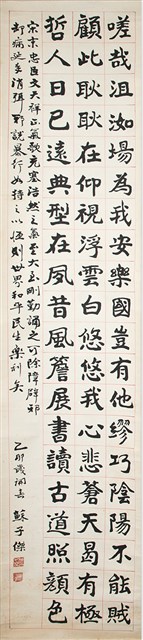 嗟哉沮洳場為我安樂國豈有他繆巧陰陽不能賊
顧此耿耿在仰視浮雲白悠悠我心悲蒼天曷有極
哲人日已遠典型在夙昔風簷展書讀古道照顏色
宋宗忠臣文天祥正氣歌充塞浩然之氣至大至剛勤誦之可除障辟邪
却病延年消弭邪說暴行如持之以恆則世界和平民生樂利矣
乙卯歲洞春 蘇子傑